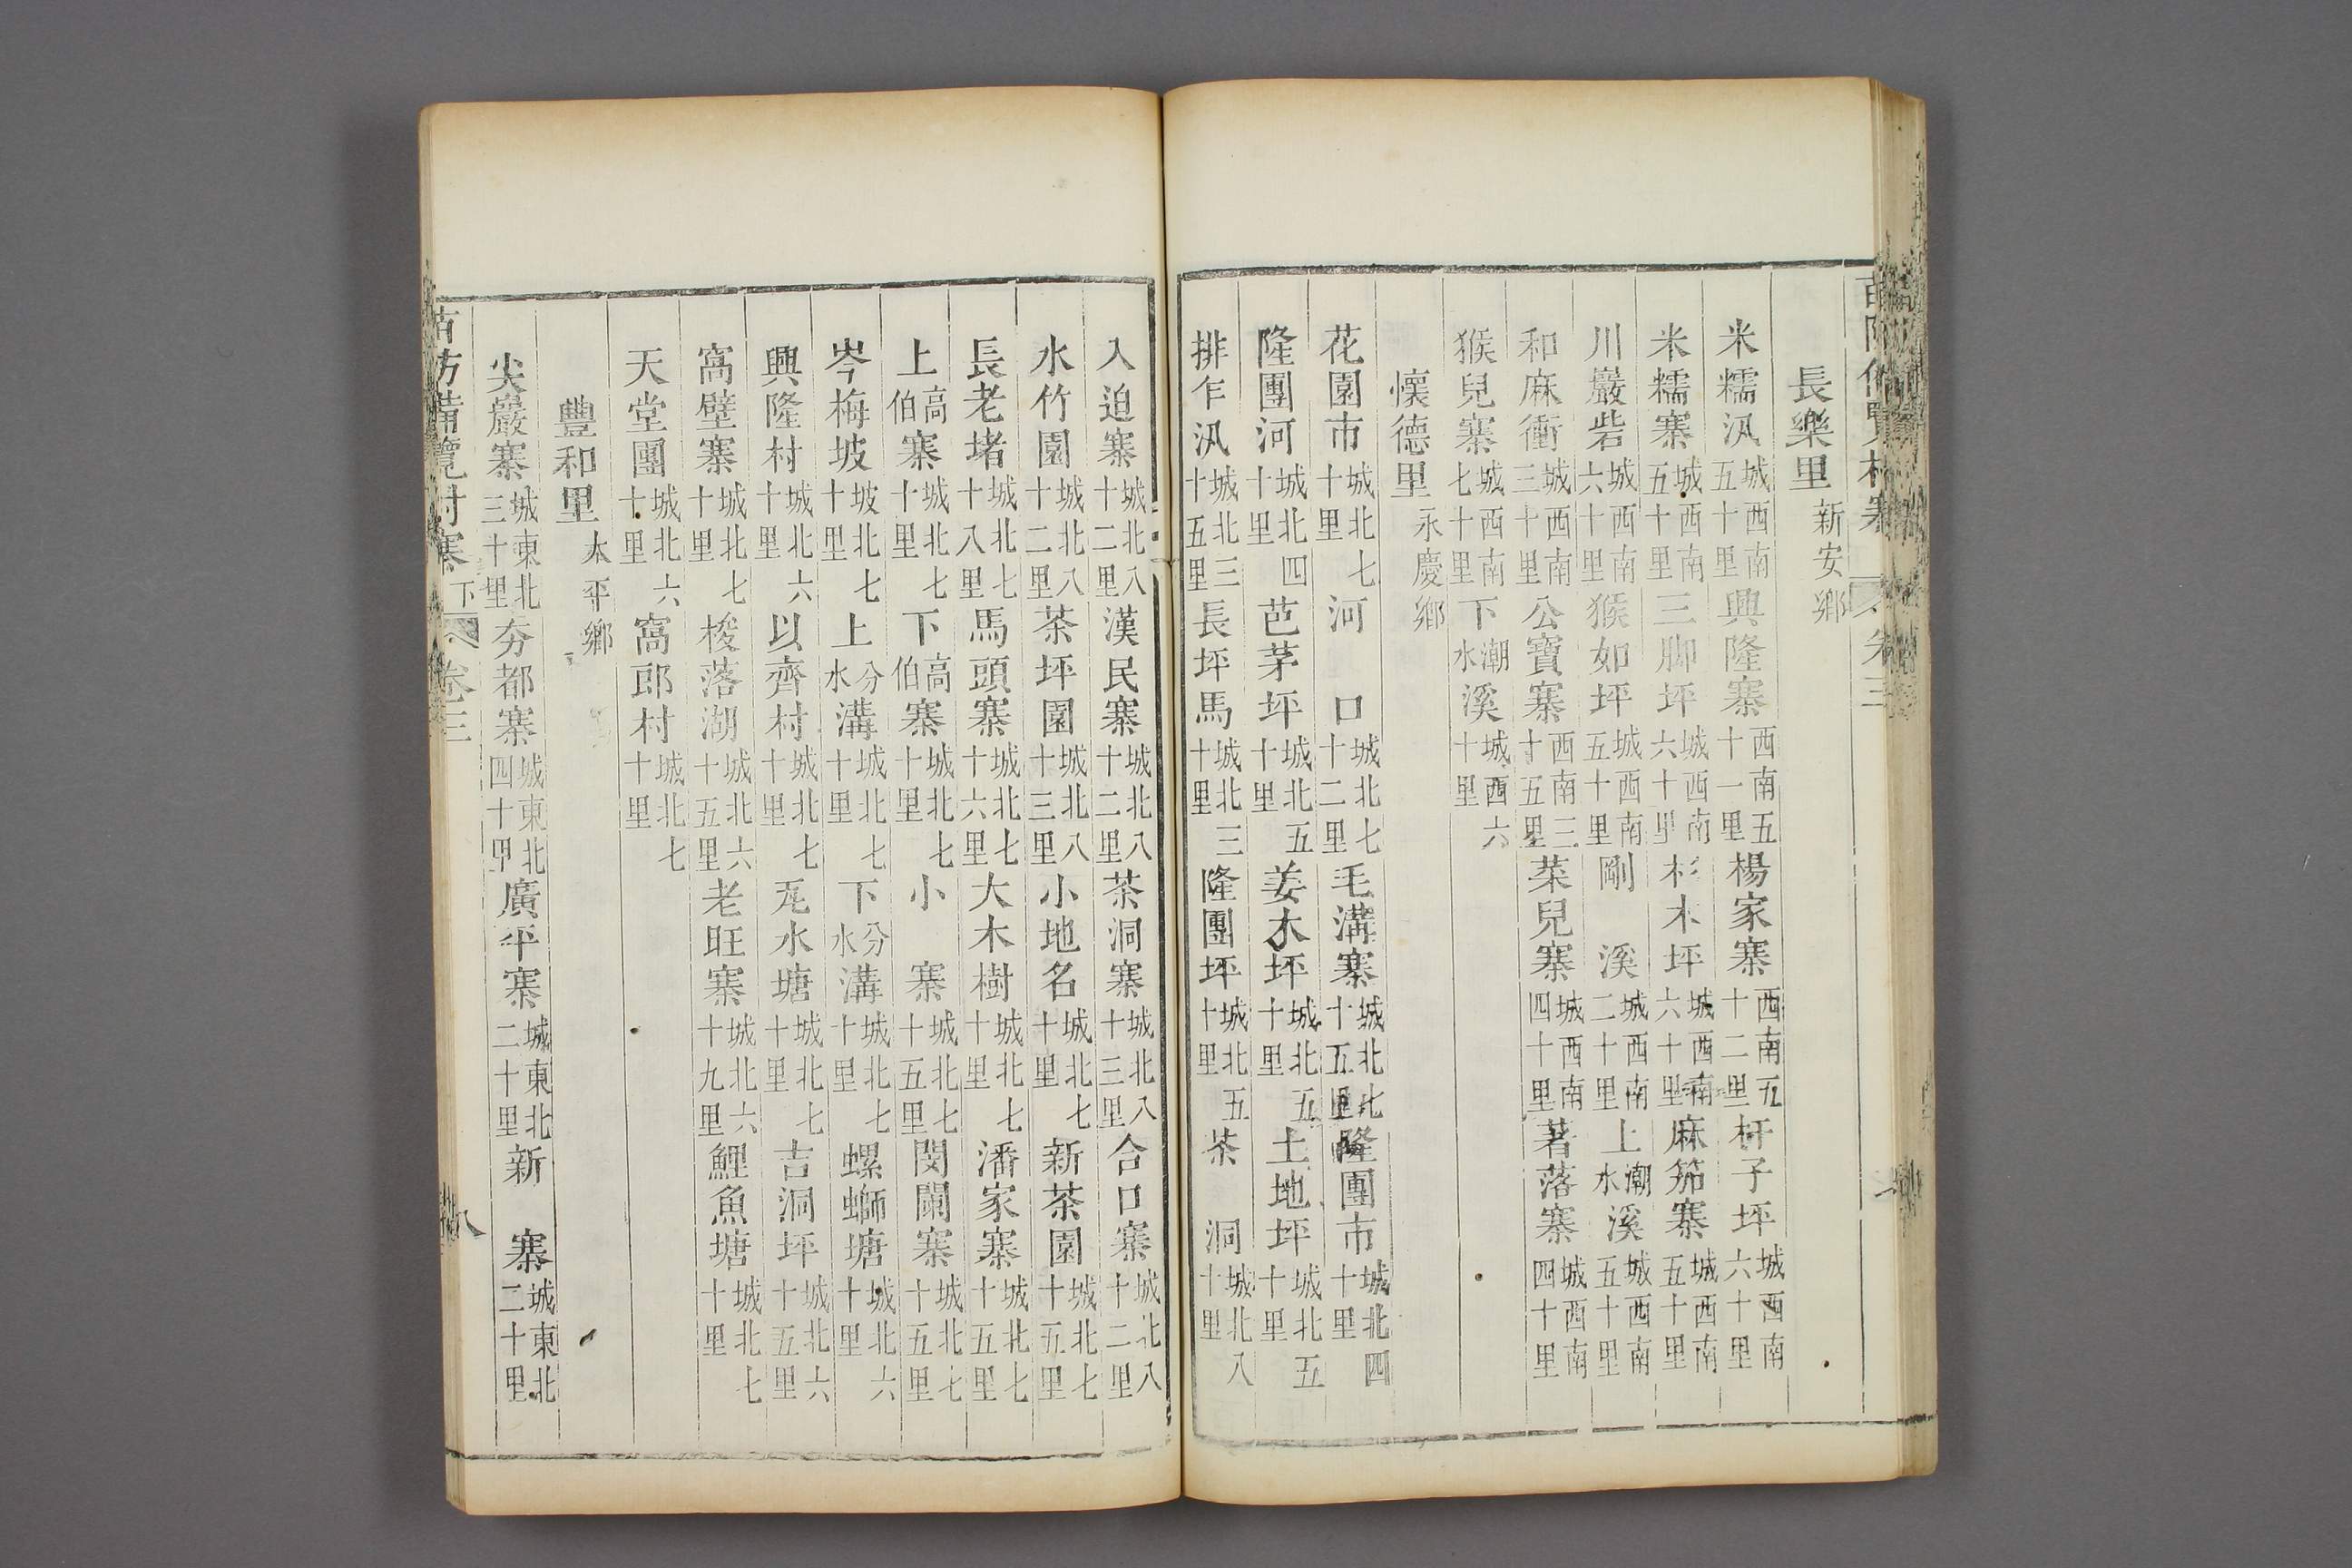 長樂里 新安鄉
米糯汛 城西南五十里 興隆寨 西南五十一里 楊家寨 西南五十二里 杆子坪 城西南六十里
米糯寨 城西南五十里 三脚坪 城西南六十里 杉木坪 城西南六十里 麻茄寨 城西南五十里
川巖砦 城西南六十里 猴如坪 城西南五十里 剛溪 城西南二十里 上潮水溪 城西南五十里
和麻衝 城西南三十里 公寶寨 西南三十五里 菜兒寨 城西南四十里 著落寨 城西南四十里
猴兒寨 城西南七十里 下潮水溪 城西六十里
懷德里 永慶鄉
花園市 城北七十里 河口 城北七十二里 毛溝寨 城北七十五里 隆團市 城北四十里
隆團河 城北四十里 芭茅坪 城北五十里 姜木坪 城北五十里 土地坪 城北五十里
排乍汛 城北三十五里 長坪馬 城北三十里 隆團坪 城北五十里 茶洞 城北八十里
入迫寨 城北八十二里 漢民寨 城北八十二里 茶洞寨 城北八十三里 合口寨 城北八十二里
水竹園 城北八十二里 茶坪園 城北八十三里 小地名 城北七十里 新茶園 城北七十五里
長老堵 城北七十八里 馬頭寨 城北七十六里 大木樹 城北七十里 潘家寨 城北七十五里
上高伯寨 城北七十里 下高伯寨 城北七十里 小寨 城北七十五里 閔閙寨 城北七十五里
岑梅坡 坡北七十里 上分水溝 城北七十里 下分水溝 城北七十里 螺螄塘 城北六十里
興隆村 城北六十里 以齊村 城北七十里 旡水塘 城北七十里 吉洞坪 城北六十五里
窩壁寨 城北七十里 梭落湖 城北六十五里 老旺寨 城北六十九里 鯉魚塘 城北七十里
天堂團 城北六十里 窩郎村 城北七十里
豐和里 太平鄉
尖巖寨 城東北三十里 夯都寨 城東北四十里 廣平寨 城東北二十里 新寨 城東北二十里
苗防備覽村寨下 卷三 八